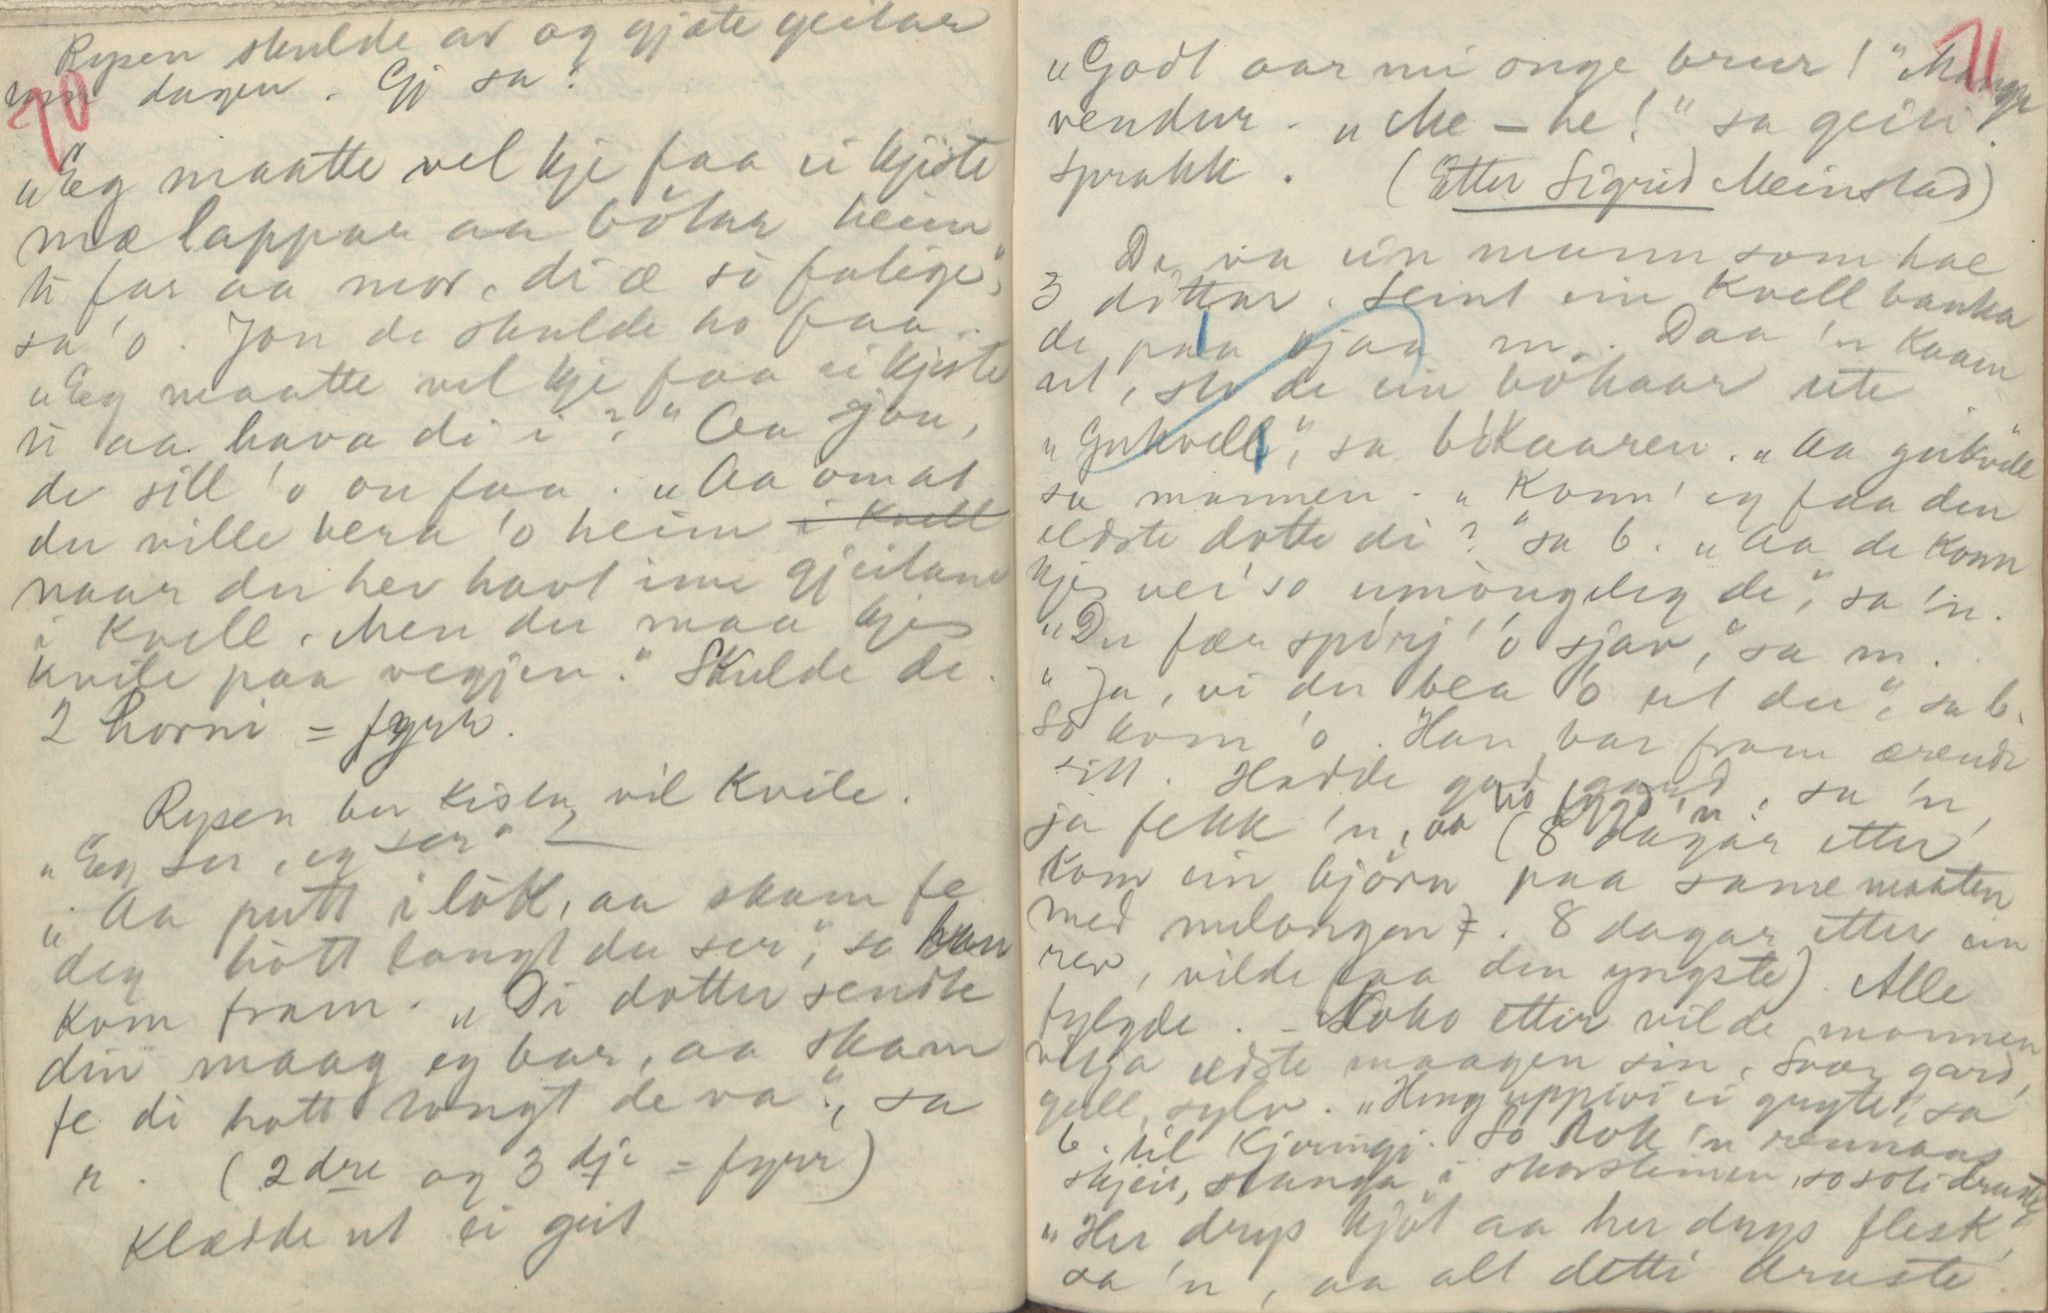 70
Rysen skulde av og gjæte geitar
um dagen. Gj sa:
„Eg maatte vel kje faa ei kjiste
mæ lappar aa bòtar heim
ti far aa mor, di æ so fatige",
sa 'o. Jou de skulde ho faa.
„Eg maatte vel kje faa ei kjiste
ti aa hava di i?" Aa jou,
de sill 'o au faa. „Aa om at
du ville bera 'o heim i kvell
naar du hev havt inn gjeitane
i kvell. Men du maa kje
kvile paa vegjen." Skulde de.
2 horni = fyrr.
Rysen ber kista, vil kvile.
„Eg ser, eg ser"
„Aa putt i lòk, aa skam fe
deg hott langt du ser", sa han
kom fram. „Di dotter sendte
din maag eg bar, aa skam
fe di hott longt de va", sa
r. (2dre og 3dje = fyrr)
Klædde ut ei geit
71
„Godt aar mi onge brur!" Mange
vendur. „Me-he!" sa geiti.
Sprakk. (Etter Sigrid Meinstad)
De va ein mann som hae
3 dòttar. Seint ein kvell banka
de paa hjaa m. Daa 'n kaam
ut, sto de ein bòkaar ute.
„Gukvell", sa bòkaaren. „Aa gukvell"
sa mannen. „Konn' eg faa den
eldste dotte di?" sa b. „Aa de konn
kje vei so umòngeleg de", sa 'n.
„Du fær spörj 'o sjøv", sa m.
„Ja, vi du bea 'o ut du", sa b.
So kom 'o. Han bar fram ærende
sitt. Hadde god gard, sa 'n,
ja fekk 'n, aa ho fygd 'n. (8 dagar etter
kom ein björn paa same maaten
med . 8 dagar etter ein
rev, vilde faa den yngste). Alle
fylgde. - Soko etter vilde mannen
vitja eldste maagen sin. Svær gard,
gull, sylv. „Heng uppivi ei gryte", sa
b. til kjeringi. So tok 'n
skjei, stanga i skorsteinen, so soti draste
„Her dryp kjöt aa her dryp flesk",
sa 'n, aa alt detti draste.